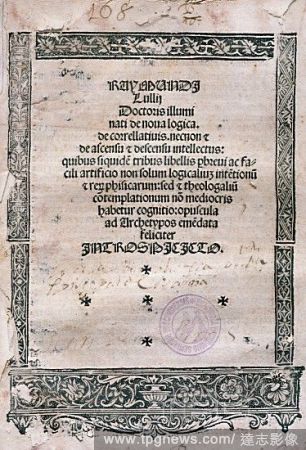 168
RAYMUNDI
Lullij
Doctoris illumi
nati de noua logica.
de correllatiuis. necnon &
de ascensu & descensu intellectus:
quibus siquidē tribus libellis phreui ac fa
cili artificio non solum logicaliuȝ intētionū
& reȝ phisicarum: sed & theologaliū
cōtemplationum nō mediocris
habetur cognitio: opuscula
ad Archetypos emēdata
feliciter
INTROSPICITO.
www.tpgnews.com/ 達志影像